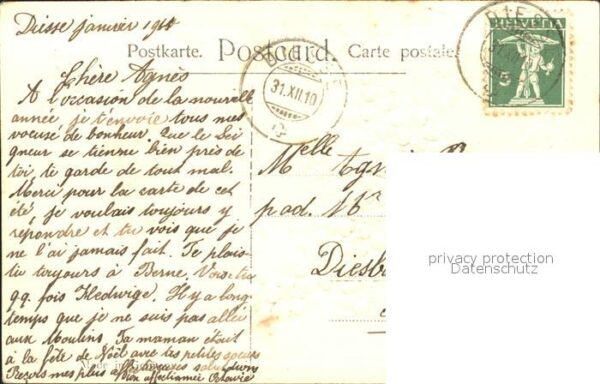 Diesse janvier 1911
Postkarte. Postcard. Carte postale.
Chère Agnès
A l'occasion de la nouvelle
année, je t'envoie tous mes
voeux de bonheur. Que le Sei
gneur se tienne bien près de
toi, te garde de tout mal.
Merci pour la carte de cet
été, je voulais toujours y
répondre et tu vois que je
ne l'ai jamais fait. Te plais-
tu toujours à Berne. Vois-tu
qq. fois Hedwige. Il y a long-
temps que je ne suis pas allée
aux Moulins. Ta maman était
à la fête de Noël avec tes petites soeurs
Reçois mes plus affectueuses salut
ton affectionnée
DIESSE
31.XII.10
HELVETIA
5
DIESSE
31.XII.10
Melle Agn
pad.
Diesb
privacy protection
Datenschutz